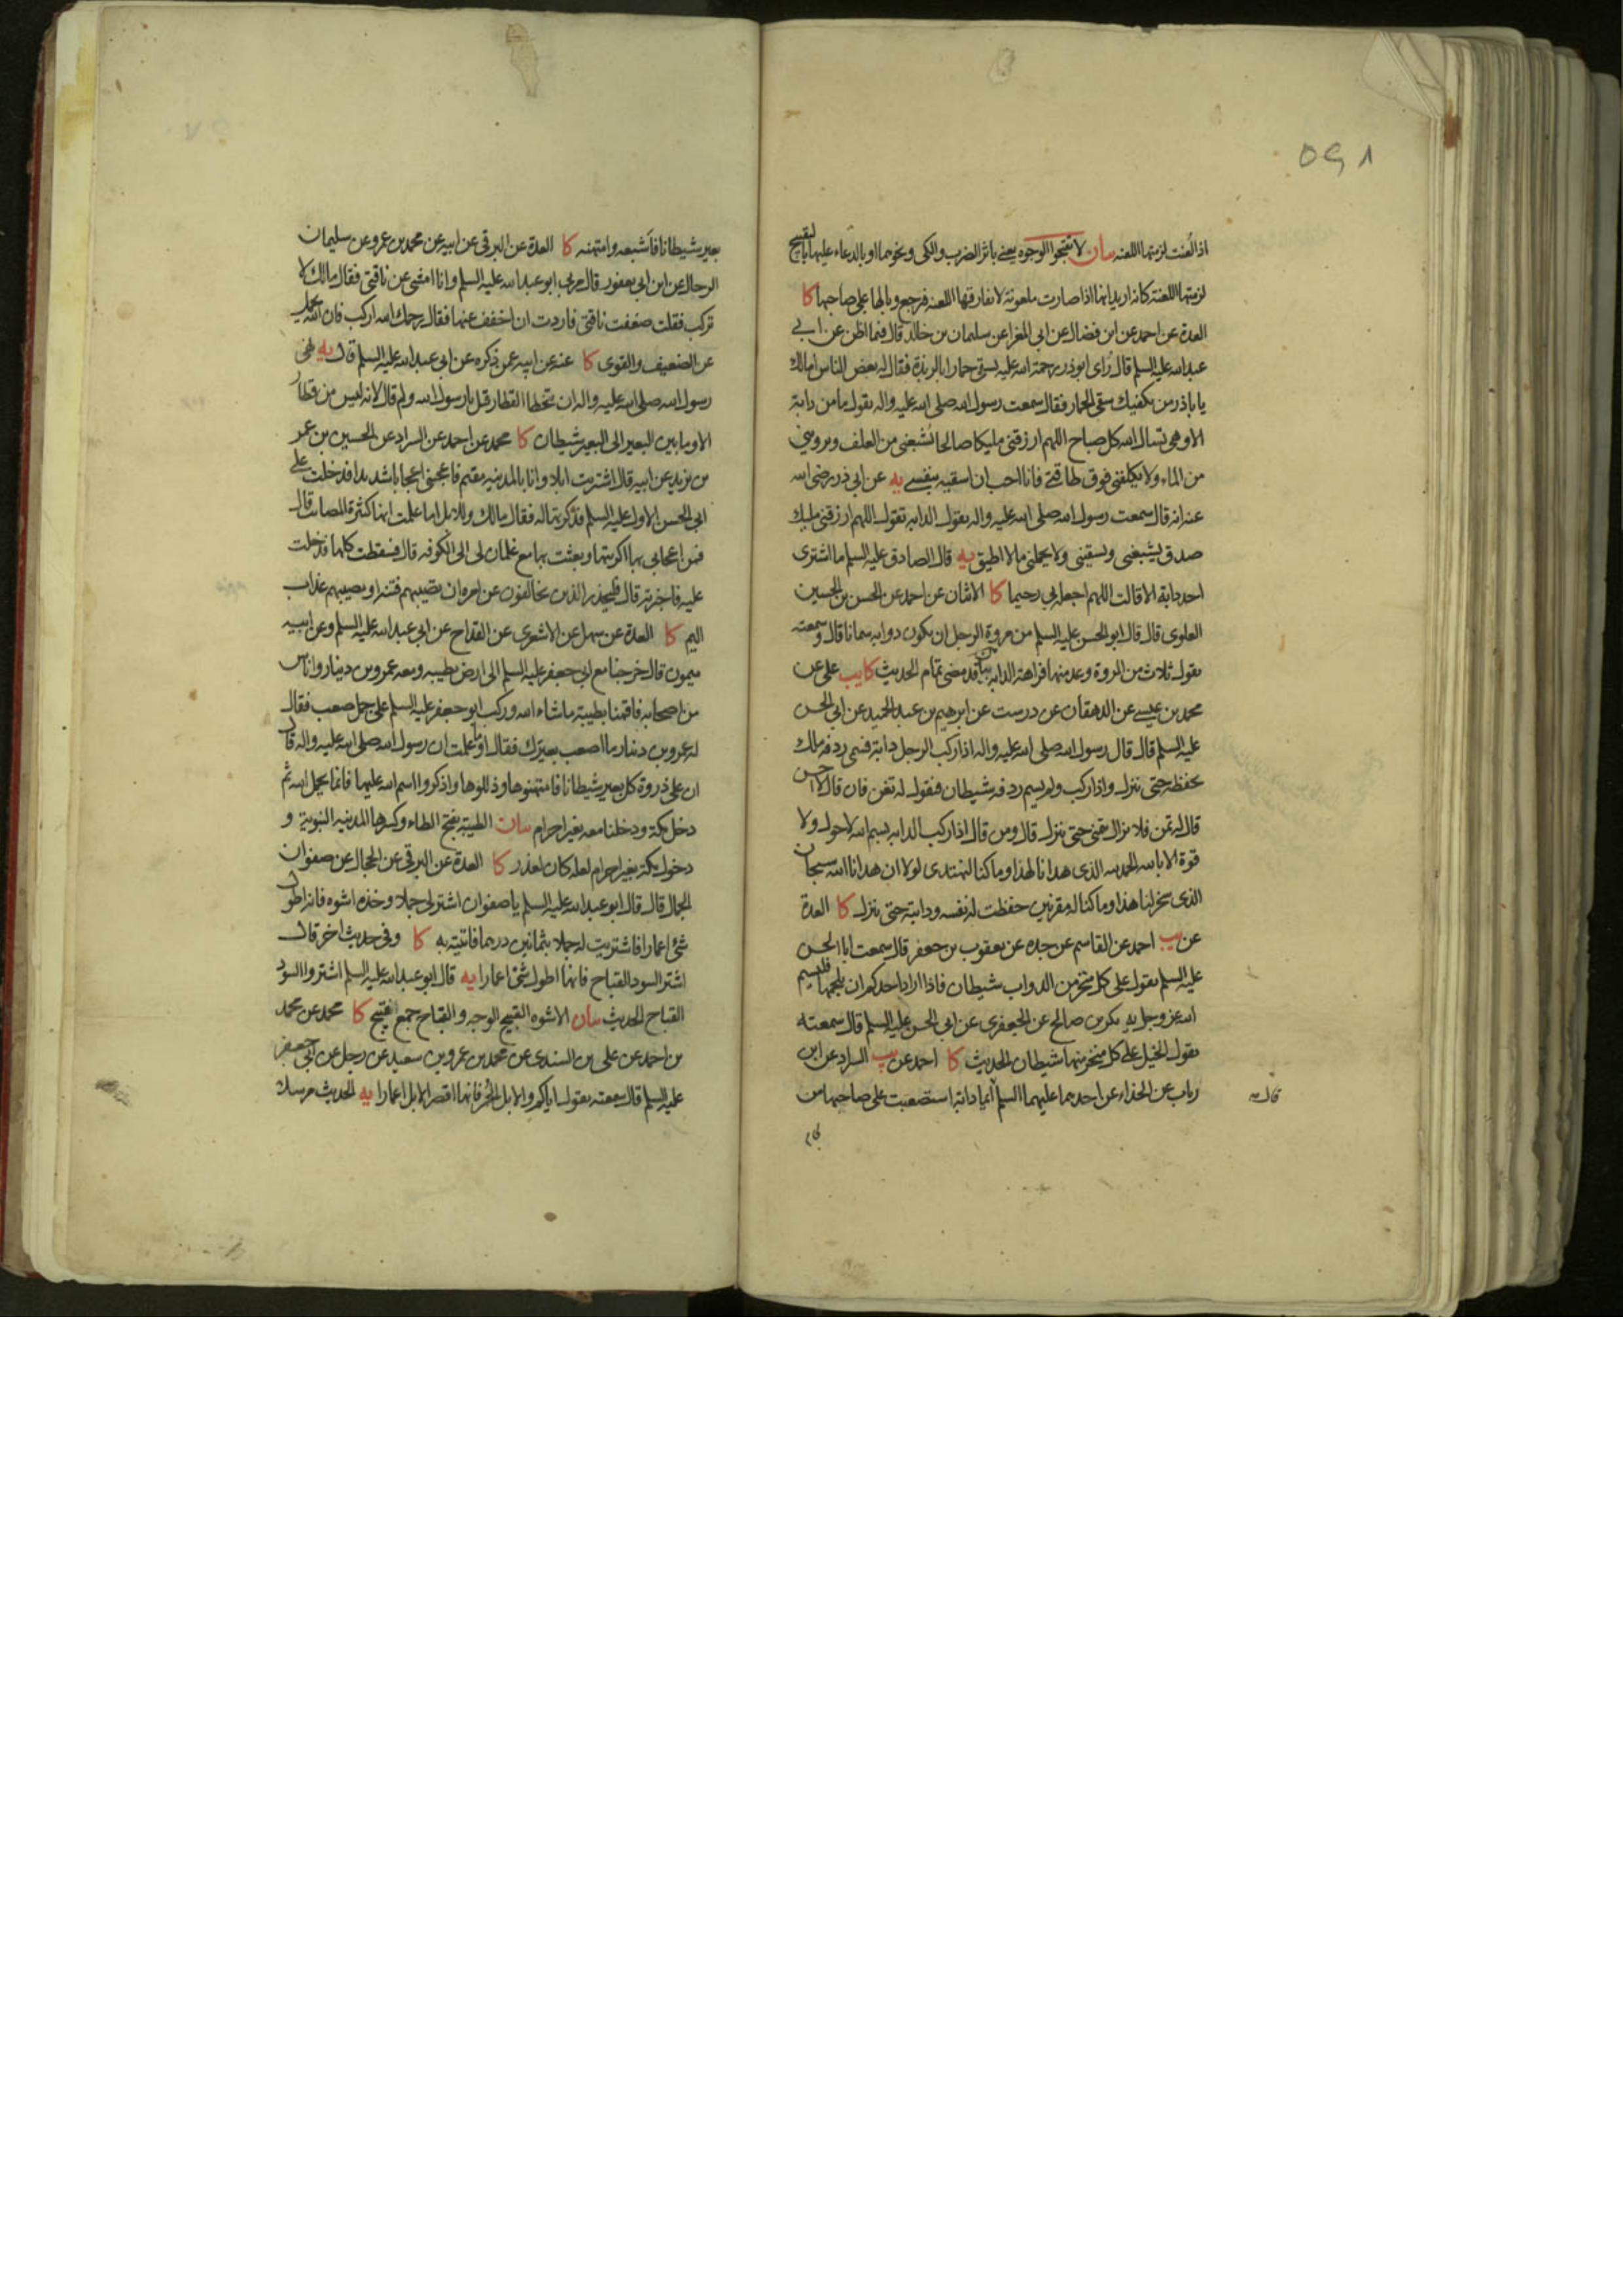 ٥٩١
اذا لُعنت لزمتها اللعنه بيان لا تقبحوا الوجوه يعنى باثر الضرب والكى ونحوهما او بالدعاء عليها بالتقبيح
لزمتها اللعنة كانه اريد انها اذا صارت ملعونة لا تفارقها اللعنه فرجع وبالها على صاحبها كا
العدة عن احمد عن ابن فضال عن ابى المغرا عن سليمان بن خالد قال فيما اظن عن ابى
عبدالله عليه السلم قال رُاى ابوذر رحمة الله عليه يسقى حمارا بالربذة فقال له بعض الناس امالك
يا باذر من يكفيك سقى الحمار فقال سمعت رسول الله صلى الله عليه واله يقول ما من دابة
الا وهى تسال الله كل صباح اللهم ارزقنى مليكا صالحا يُشبعنى من العلف ويروينى
من الماء ولا يكلفنى فوق طاقتى فانا احب ان اسقيه بنفسى يه عن ابى ذر رضى الله
عنه انه قال سمعت رسول الله صلى الله عليه واله يقول الدابه تقول اللهم ارزقنى مليك
صدق يشبعنى ويسقينى ولا يحملنى ما لا اطيق يه قال الصادق عليه السلم ما اشترى
احد دابة الا قالت اللهم اجعله بى رحيما كا الاثنان عن احمد عن الحسن بن الحسين
العلوى قال قال ابو الحسن عليه السلم من مروة الرجل ان يكون دوابه سمانا قال وسمعته
يقول ثلاث من المروة وعد منها فراهة الدابه بيان قد مضى تمام الحديث كا يب على عن
محمد بن عيسى عن الدهقان عن درست عن ابرهيم بن عبدالحميد عن ابى الحسن
عليه السلم قال قال رسول الله صلى الله عليه واله اذا ركب الرجل دابة فسمى ردفه ملك
يحفظه حتى ينزل واذا ركب ولم يسم ردفه شيطان فيقول له تغن فان قال لا احسن
قال له تمن فلا يزال يتمنى حتى ينزل قال ومن قال اذا ركب الدابه بسم الله لا حول ولا
قوة الا بالله الحمد لله الذى هدانا لهذا وما كنا لنهتدى لولا ان هدانا الله سبحان
الذى سخر لنا هذا وما كنا له مقرنين حفظت له نفسه ودابته حتى ينزل كا العدة
عن يب احمد عن القاسم عن جده عن يعقوب بن جعفر قال سمعت ابا الحسن
عليه السلم يقول على كل منخر من الدواب شيطان فاذا اراد احدكم ان يلجمها فليسم
الله عز وجل يه بكر بن صالح عن الجعفرى عن ابى الحسن عليه السلم قال سمعته
يقول الخيل على كل منخر منها شيطان الحديث كا احمد عن يب السراد عن ابن
رباب عن الحذاء عن احدهما عليهما السلم ايما دابة استصعبت على صاحبها من
قال
بعير شيطانا فاشبعه وامتهنه كا العدة عن البرقى عن ابيه عن محمد بن عمرو عن سليمان
الرحال عن ابن ابى يعفور قال مر بى ابو عبدالله عليه السلم وانا امشى عن ناقتى فقال مالك لا
تركب فقلت ضعفت ناقتى فاردت ان اخفف عنها فقال رحمك الله اركب فان الله يحمل
عن الضعيف والقوى كا عنه عن ابيه عمن ذكره عن ابى عبدالله عليه السلم قال يه نهى
رسول الله صلى الله عليه واله ان يتخطا القطار قيل يا رسول الله ولم قال لانه ليس من قطار
الا وما بين البعير الى البعير شيطان كا محمد عن احمد عن السراد عن الحسين بن عمر
بن يزيد عن ابيه قال اشتريت ابلا وانا بالمدينه مقيم فاعجبنى اعجابا شديدا فدخلت على
ابى الحسن الاول عليه السلم فذكرتها له فقال مالك وللابل اما علمت انها كثيرة المصائب قال
فمن اعجابى بها اكريتها وبعثت بها مع غلمان لى الى الكوفه قال فسقطت كلها فدخلت
عليه فاخبرته قال فليحذر الذين يخالفون عن امره ان تصيبهم فتنه او يصيبهم عذاب
اليم كا العدة عن سهل عن الاشعرى عن القداح عن ابى عبدالله عليه السلم وعن ابيه
ميمون قال خرجنا مع ابى جعفر عليه السلم الى ارض بطيبه ومعه عمرو بن دينار واناس
من اصحابه فاقمنا بطيبة ما شاء الله وركب ابو جعفر عليه السلم على جمل صعب فقال
له عمرو بن دينار ما اصعب بعيرك فقال اوما علمت ان رسول الله صلى الله عليه واله قال
ان على ذروة كل بعير شيطانا فامتهنوها وذللوها واذكروا اسم الله عليها فانما يحمل الله ثم
دخل مكة ودخلنا معه بغير احرام بيان الطيبة بفتح الطاء وكسرها المدينه النبويه و
دخول مكة بغير احرام لعله كان لعذر كا العدة عن البرقى عن الحجال عن صفوان
الجمال قال قال ابو عبدالله عليه السلم يا صفوان اشتر لى جملا وخذه اشوه فانه اطول
شئ اعمارا فاشتريت له جملا بثمانين درهما فاتيته به كا وفى حديث اخر قال
اشتر السود القباح فانها اطول شئ اعمارا يه قال ابو عبدالله عليه السلم اشتروا السود
القباح الحديث بيان الاشوه القبيح الوجه والقباح جمع قبيح كا محمد عن محمد
بن احمد عن على بن السندى عن محمد بن عمرو بن سعيد عن رجل عن ابى جعفر
عليه السلم قال سمعته يقول اياكم والابل الحُمر فانها اقصر الابل اعمارا يه الحديث مرسلا